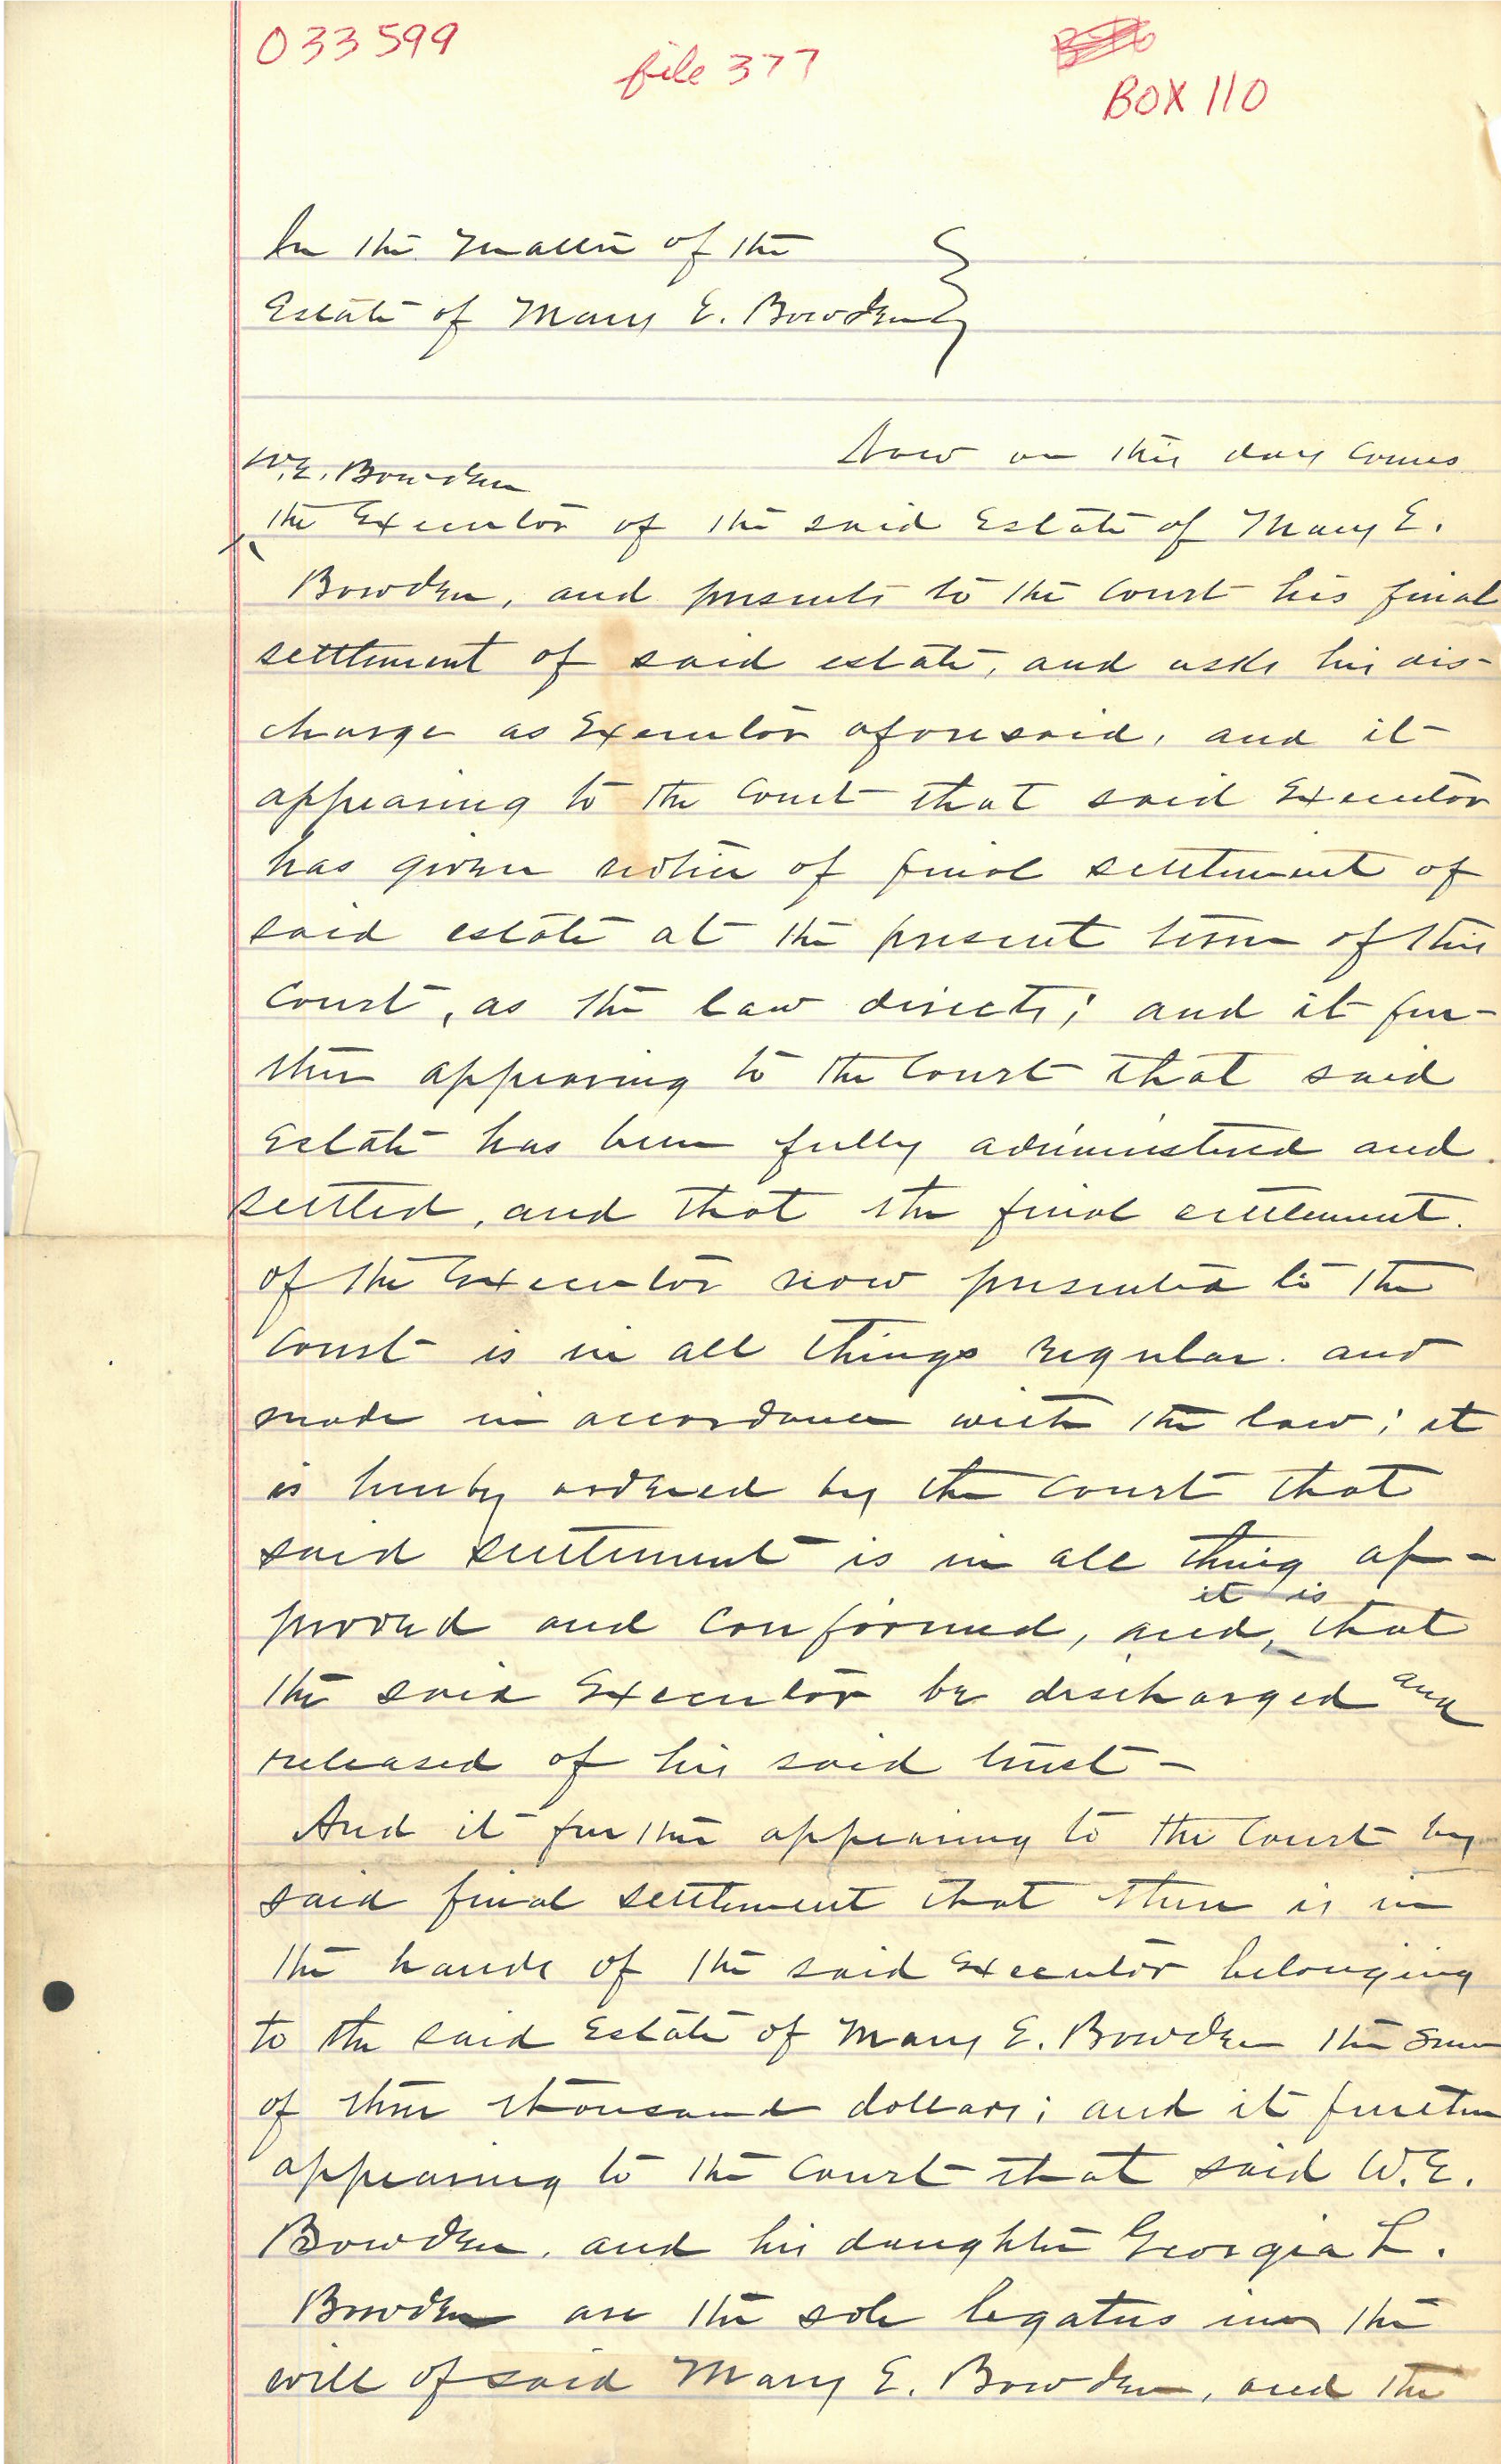 033599
file 377
BOX 110
In the Matter of the
Estate of Mary E. Bowden
Now on this day comes
W.E. Bowden
the Executor of the said Estate of Mary E.
Bowden, and presents to the Court his final
settlement of said estate, and asks his dis-
charge as Executor aforesaid, and it
appearing to the Court that said Executor
has given notice of final settlement of
said estate at the present term of this
Court, as the law directs; and it fur-
ther appearing to the Court that said
Estate has been fully administered and
settled, and that the final settlement
of the Executor now presented to the
Court is in all things regular and
made in accordance with the law; it
is hereby ordered by the Court that
said settlement is in all thing ap-
it is
proved and confirmed, and that
the said Executor be discharged and
released of his said trust-
And it further appearing to the Court by
said final settlement that there is in
the hands of the said Executor belonging
to the said Estate of Mary E. Bowden the sum
of three thousand dollars; and it further
appearing to the Court that said W.E.
Bowden, and his daughter Georgia L.
Bowden are the sole legatees in the
will of said Mary E. Bowden, and the